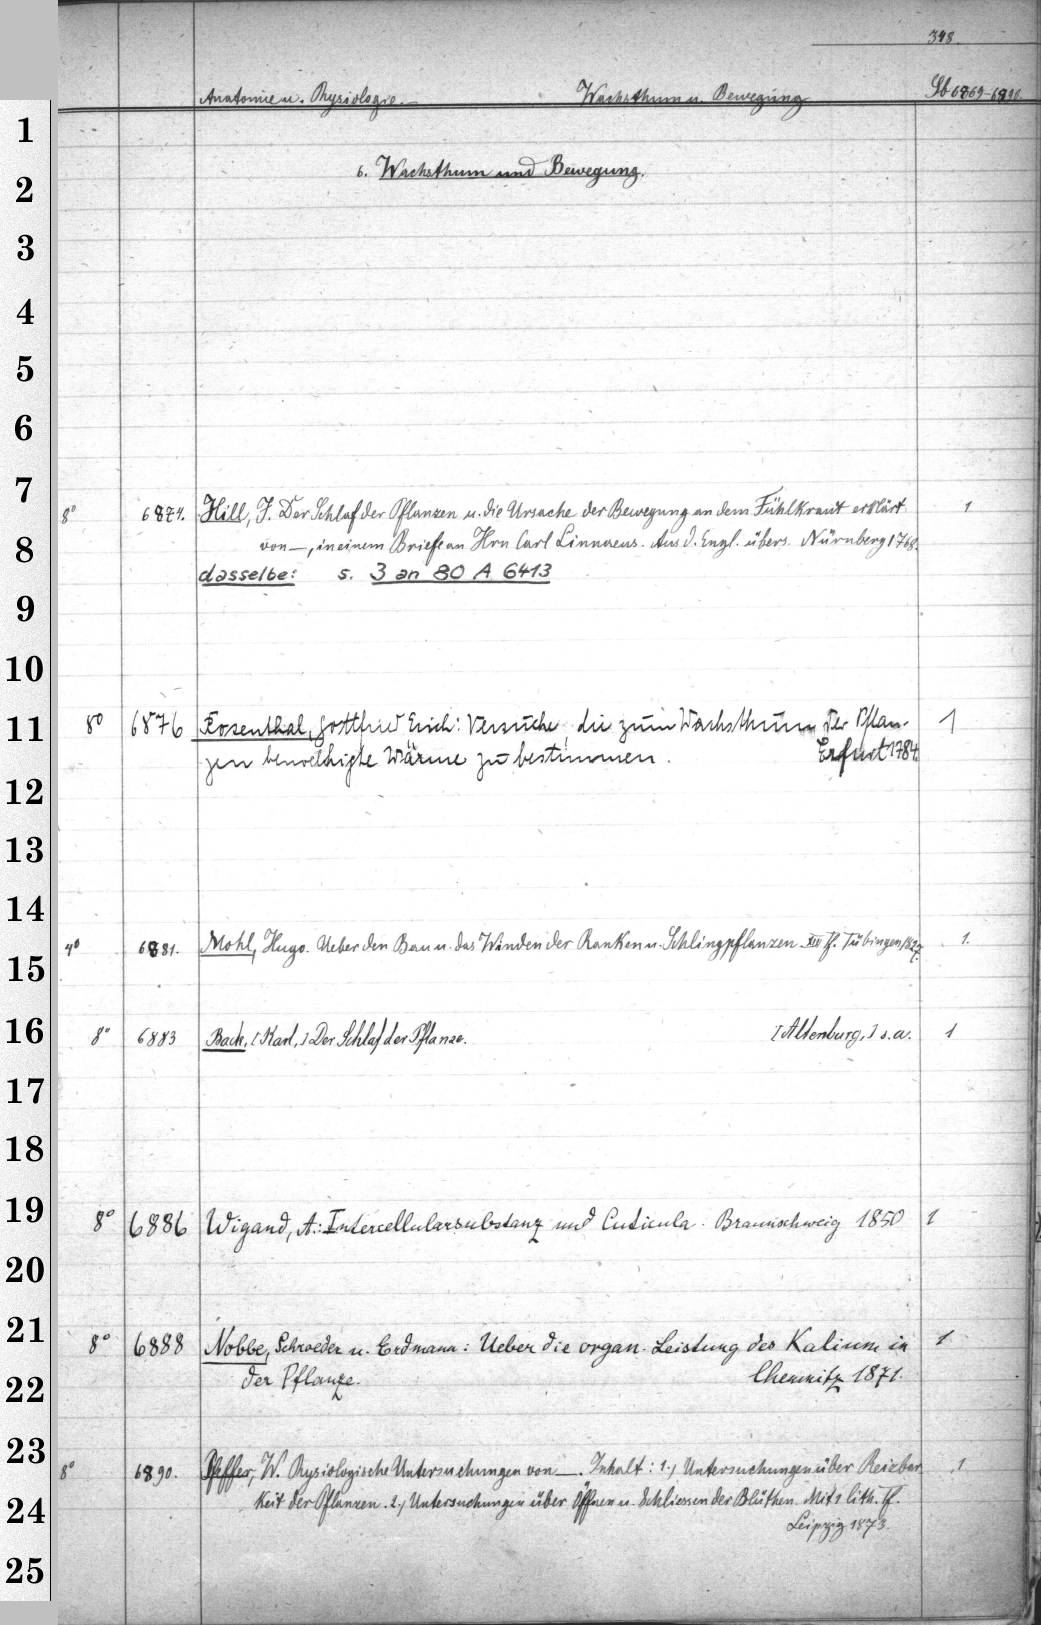 348.
Anatomie u. Physiologie. Wachsthum u. Bewegung Sb 6869-6890.
1
6. Wachsthum und Bewegung.
2
3
4
5
6
7
8° 6874. Hill, J. Der Schlaf der Pflanzen u. die Ursache der Bewegung an dem Fühlkraut erklärt 1
8 von —, in einem Briefe an Hrn Carl Linnaeus. Aus d. Engl. übers. Nürnberg 1768.
dasselbe: s. 3 an 80 A 6413
9
10
11 8° 6876 Rosenthal, Gottfried Erich: Versuche, die zum Wachsthum der Pflan- 1
zen benoethigte Wärme zu bestimmen. Erfurt 1784.
12
13
14
4° 6881. Mohl, Hugo. Ueber den Bau u. das Winden der Ranken u. Schlingpflanzen. XIII Tf. Tübingen 1827. 1.
15
16 8° 6883 Back, [Karl,] Der Schlaf der Pflanze. [Altenburg,] s.a. 1
17
18
19 8° 6886 Wigand, A.: Intercellularsubstanz und Cuticula. Braunschweig 1850 1
20
21 8° 6888 Nobbe, Schroeder u. Erdmann: Ueber die organ. Leistung des Kalium in 1
22 der Pflanze. Chemnitz 1871.
23
8° 6890. Pfeffer, W. Physiologische Untersuchungen von —. Inhalt: 1.) Untersuchungen über Reizbar 1
24 keit der Pflanzen. 2.) Untersuchungen über Öffnen u. Schliessen der Blüthen. Mit 1 lith. Tf.
Leipzig 1873.
25